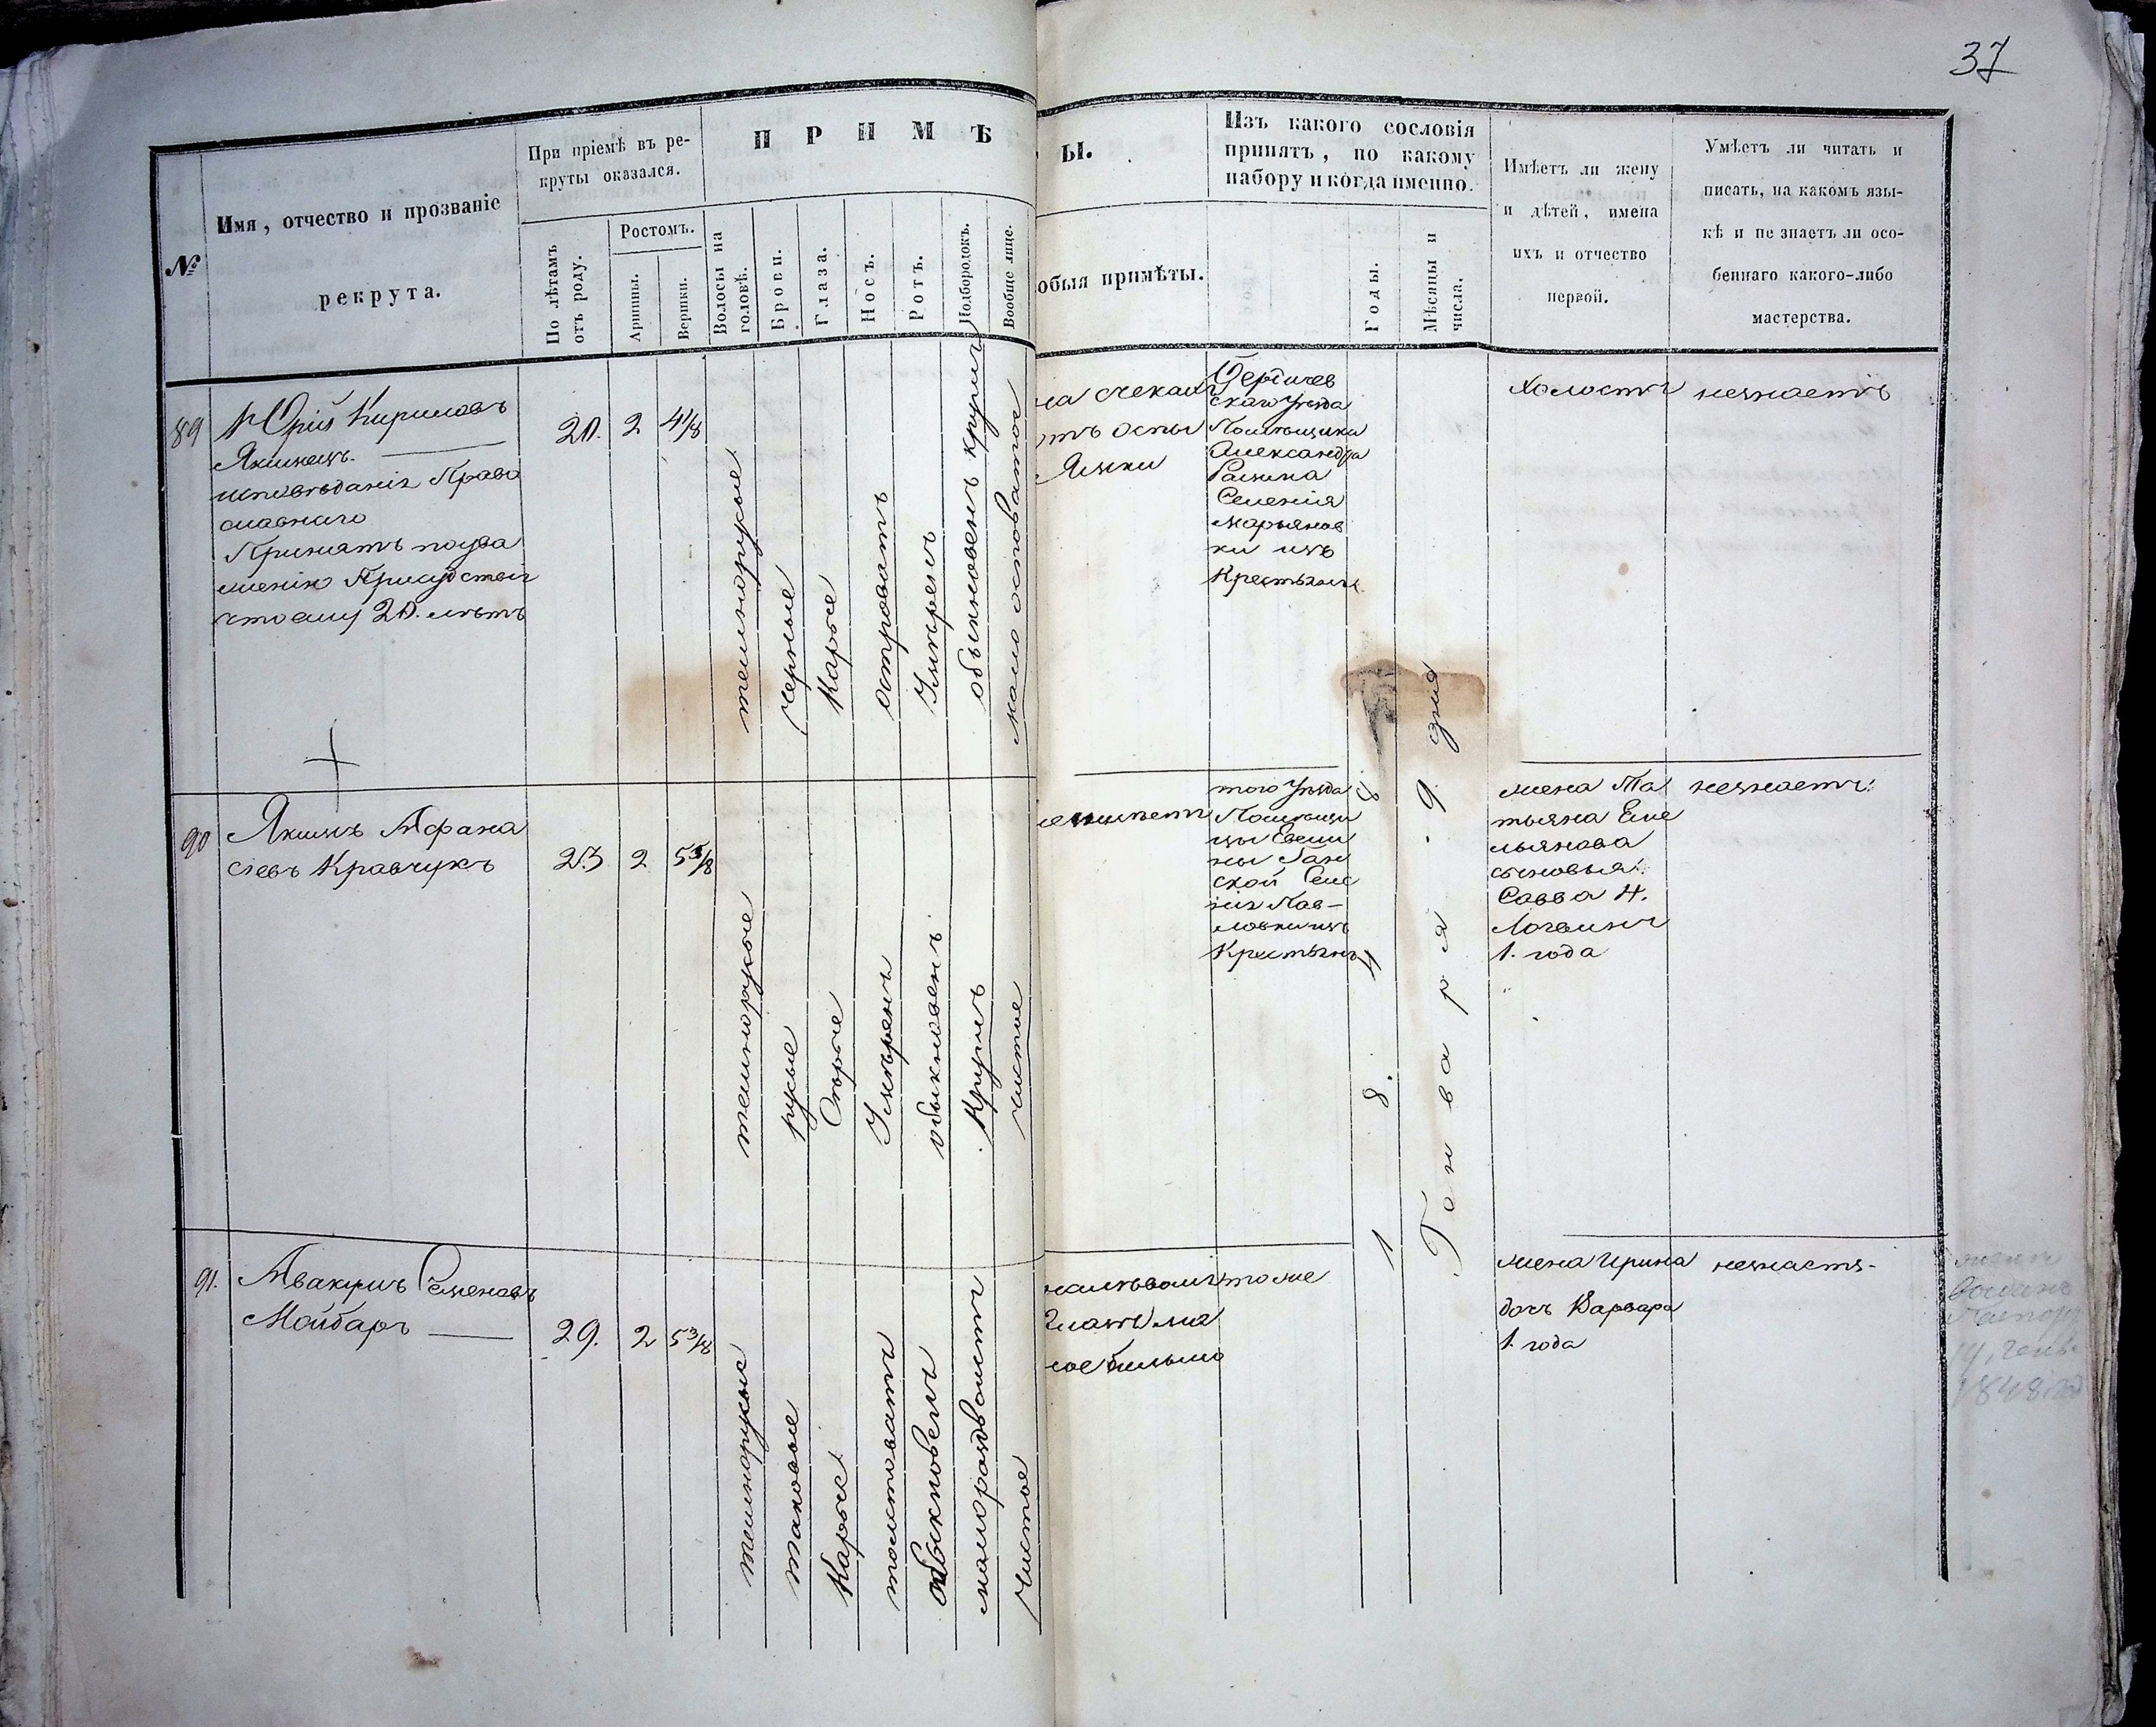 37
№
Имя, отчество и прозваніе
рекрута.
При пріемѣ въ ре-
круты оказался.
По лѣтамъ
отъ роду.
Ростомъ.
Аршины.
Вершки.
ПРИМѢ
Волосы на
головѣ.
Брови.
Глаза.
Носъ.
Ротъ.
Подбородокъ.
Вообще лице.
ы.
обыя примѣты.
Изъ какого сословія
принятъ, по какому
набору и когда именно.
Годы.
Мѣсяцы и
числа.
Имѣетъ ли жену
и дѣтей, имена
ихъ и отчество
первой.
Умѣетъ ли читать и
писать, на какомъ язы-
кѣ и не знаетъ ли осо-
беннаго какого-либо
мастерства.
89
Юрій Кириловъ
Якимецъ.
исповѣданія Право
славнаго
Принятъ поува
женію Присудствія
что ему 20. лѣтъ
20.
2
4/8
темнорусые
Черные
Карые
островатъ
Умѣренъ
обыкновенъ круглъ
мало осповатое
на щекахъ
отъ оспы
Ямки
Бердичев
скаго Уѣзда
Помѣщика
Александра
Селенія
Марьянов
ки изъ
Крестьянъ
Холостъ
незнаетъ
90
Якимъ Афана
сіевъ Кравчукъ
23
2
5 3/8
темнорусые
русые
Сѣрые
Умѣренъ
обыкновенъ
Круглъ
чистое
неимѣетъ
того Уѣзда
Помѣщи
цы Евели
ны Ган
ской Селе
нія Пав-
ловки изъ
Крестьянъ
184
8.
Генваря 9 дня
жена Та
тьяна Еме
льянова
сыновья:
Савва 4.
Логвинъ
1. года
незнаетъ.
91.
Авакумъ Семеновъ
Майбаръ
29.
2
5 3/8
темнорусые
таковые
Карые
толстоватъ
обыкновенъ
малораздвоистъ
Чистое
налѣвомъ
Глазѣ
ное бѣльмо
тоже
жена Ирина
дочь Варвара
1. года
незнаетъ.
1848